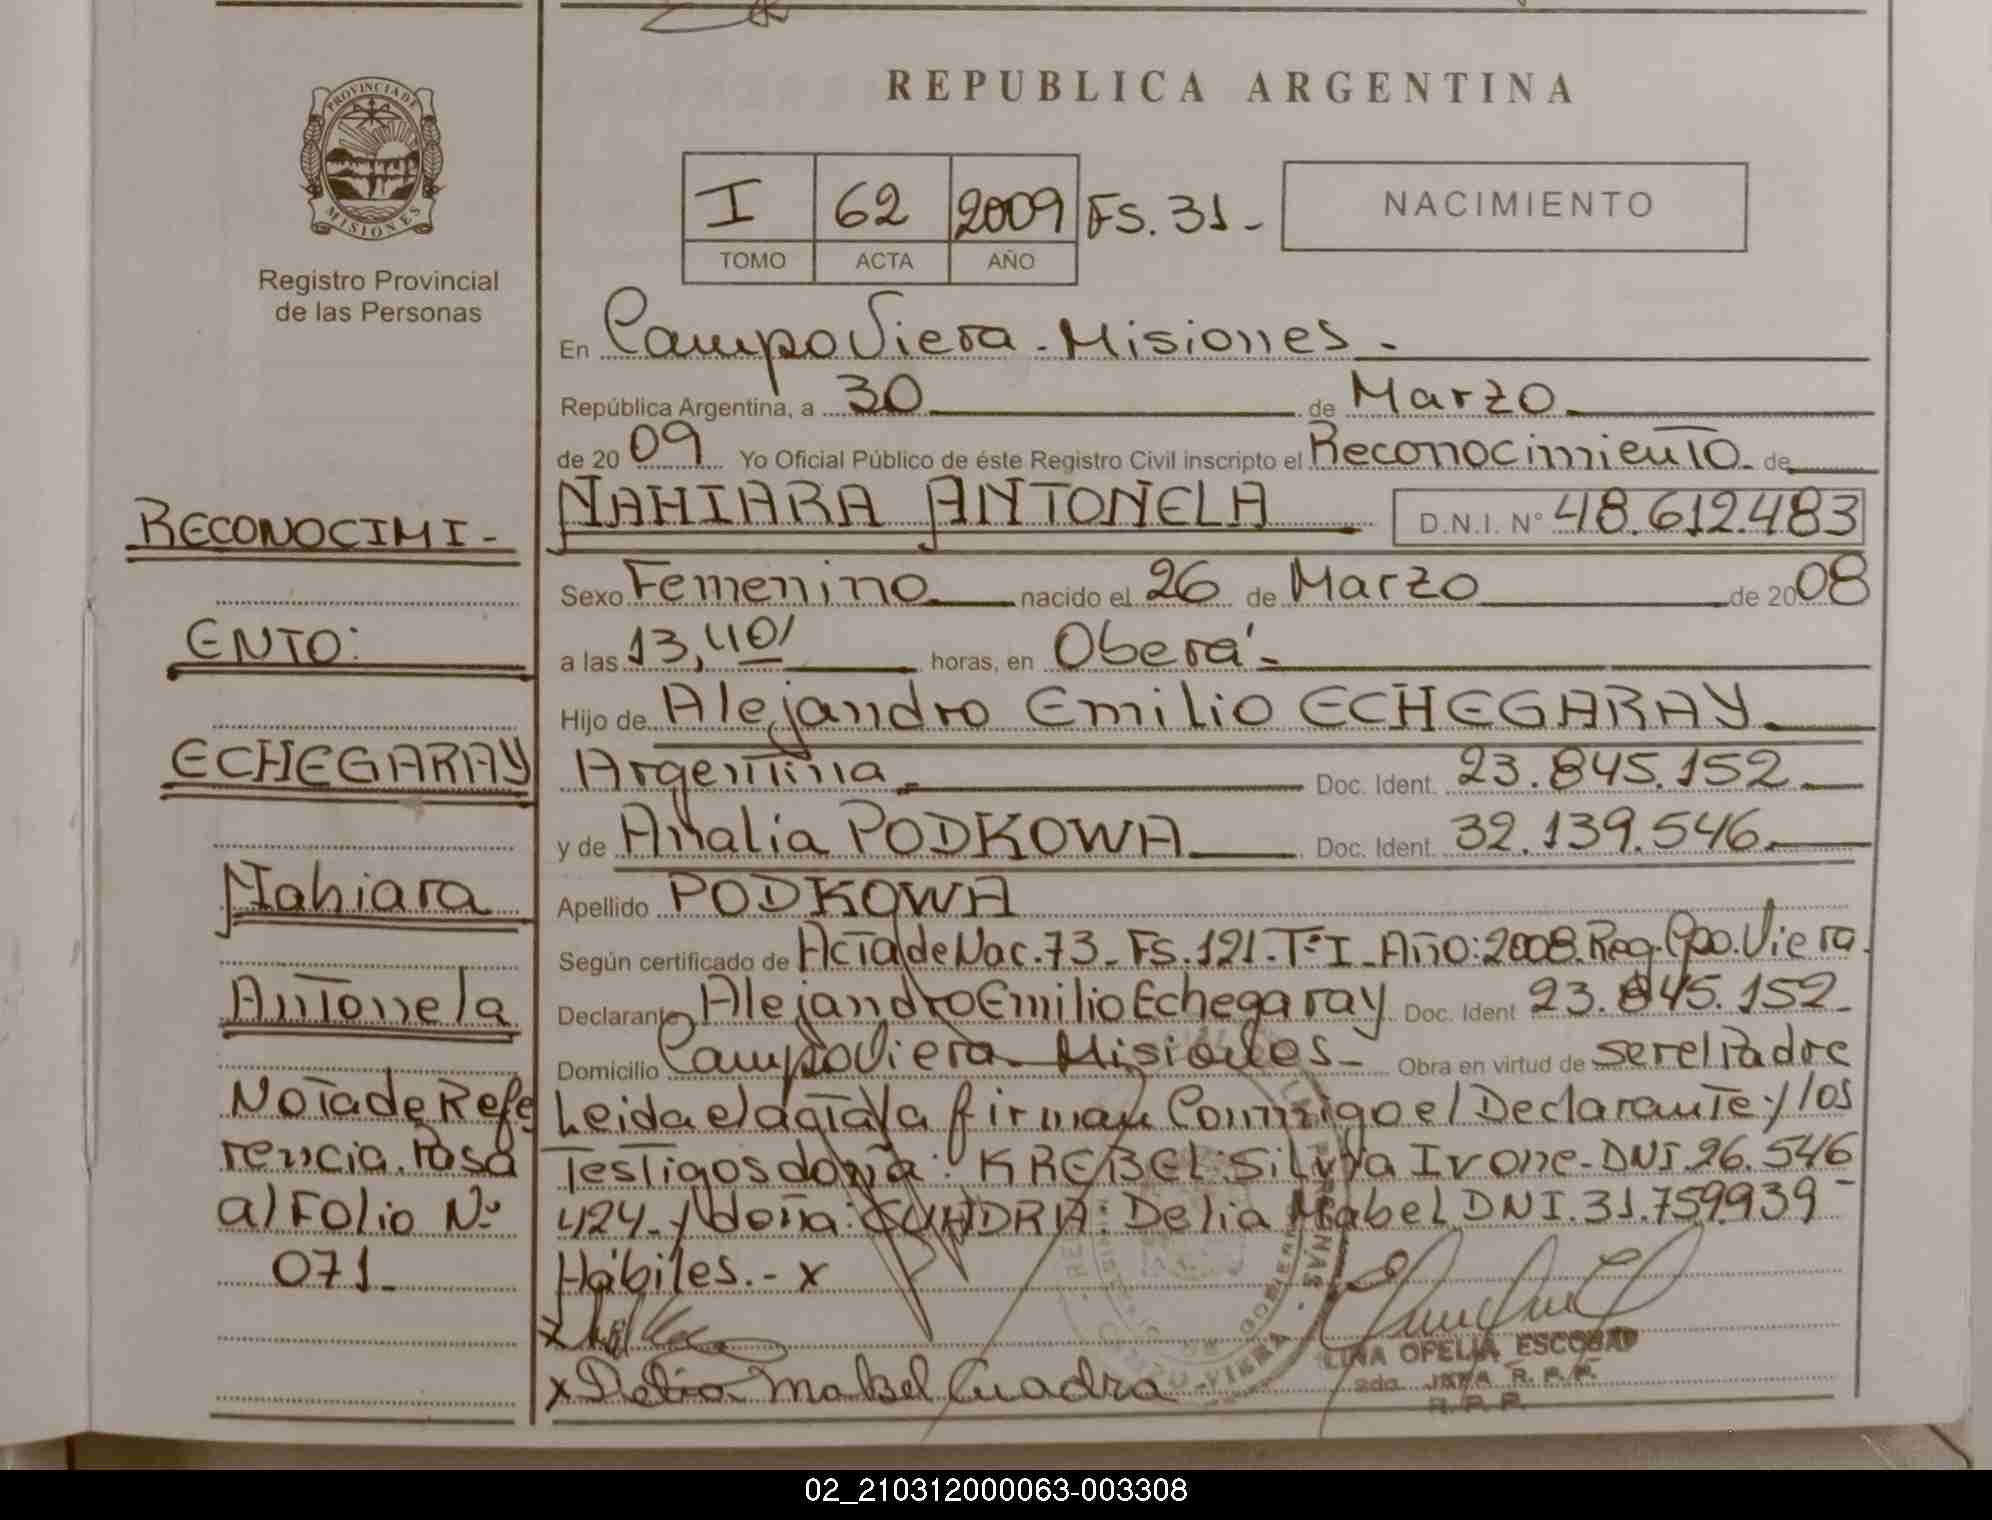 REPUBLICA ARGENTINA
PROVINCIA DE
MISIONES
Registro Provincial
de las Personas
I 62 2009 FS. 31-
TOMO ACTA AÑO
NACIMIENTO
En Campo Viera - Misiones -
República Argentina, a 30 de Marzo
de 2009 Yo Oficial Público de éste Registro Civil inscripto el Reconocimiento de
NAHIARA ANTONELA D.N.I. N° 48.612.483
Sexo Femenino nacido el 26 de Marzo de 2008
a las 13,40' horas, en Oberá -
Hijo de Alejandro Emilio ECHEGARAY
Argentina Doc. Ident. 23.845.152
y de Analia PODKOWA Doc. Ident. 32.139.546
Apellido PODKOWA
Según certificado de Acta de Nac. 73_ FS. 121. T°I_ Año: 2008. Reg. Cpo. Viera.
Declarante Alejandro Emilio Echegaray Doc. Ident 23.845.152-
Domicilio Campo Viera - Misiones - Obra en virtud de ser el Padre
Leida el acta la firman Conmigo el Declarante y los
Testigos doña: KREBEL: Silvia Ivone - DNI. 26.546
424_ y doña: CUADRA: Delia Mabel DNI. 31.759.939-
Hábiles. - x
x
x Delia Mabel Cuadra
LINA OFELIA ESCOBAR
2do. JEFA R. P. P.
R. P. P.
RECONOCIMI-
ENTO:
ECHEGARAY
Nahiara
Antonela
Nota de Refe
rencia. Pasa
al Folio N°
071_
02_210312000063-003308